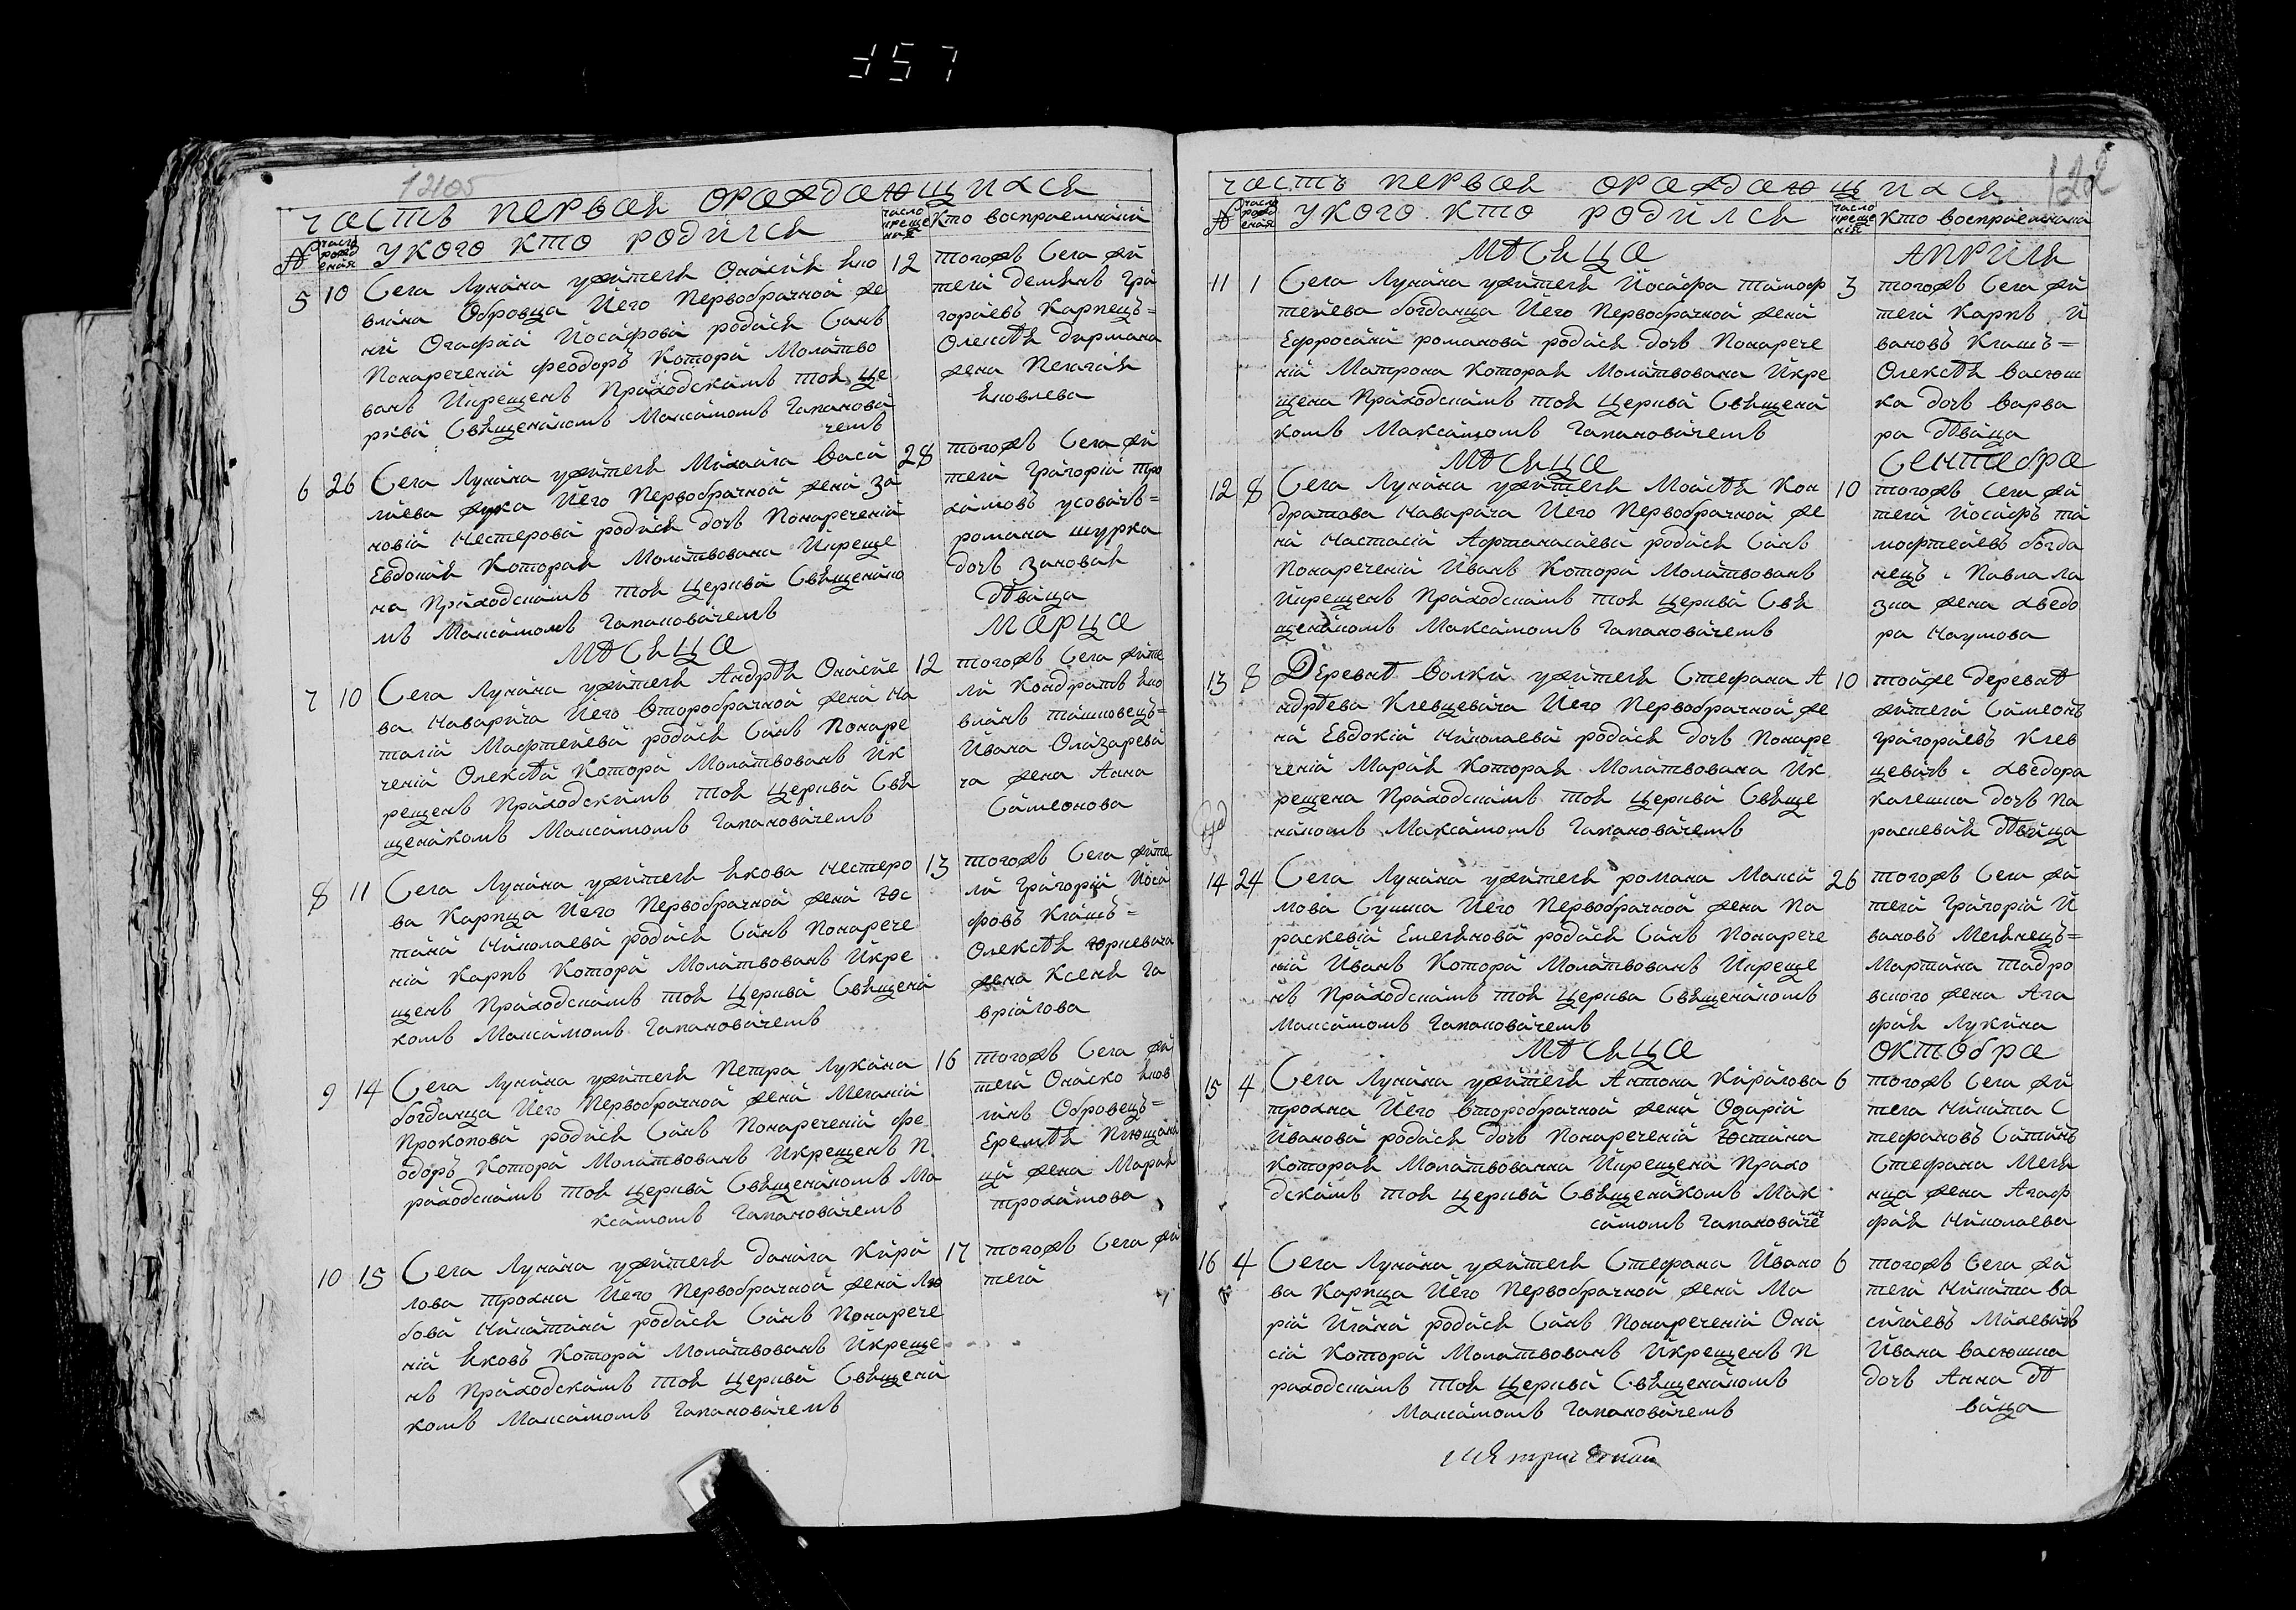 357
12105
часть первая ораждающихся
№
число рожденая
укого кто родился
число крещения
кто восприемники
5 10 Села Лунина ужителя Онисия Яко
влина Обровца Иего Первобрачной же
ни Огафии Иосифовы родися Синъ
Понаречении Феодоръ Которы Молитво
ванъ Икрещенъ Приходскимъ тоя Це
рквы Священикомъ Максимомъ Гапанови
чемъ
12 тогожъ Села жи
теля Демянъ Гри
гориевъ Карпецъ=
Олексея Дирмана
жена Пелагия
Яковлева
6 26 Села Лунина ужителя Михаила Васи
лиева жука Иего Первобрачной жени Зе
новии Нестеровы родися дочъ Понаречении
Евдокия Которая Молитвована Икреще
на Приходскимъ тоя Церквы Священико
мъ Максимомъ Гапановичемъ
28 тогожъ Села жи
тели Григорий Тро
химовъ усовичъ=
романа шурка
дочъ Зиновия
Дѣвица
мѣсяца марца
7 10 Села Лунина ужителя Андрѣя Онисие
ва Наварича Иего Второбрачной жени На
талии Матфеиевы родися Синъ Понаре
чении Олексѣй Которы Молитвованъ Ик
рещенъ Приходскимъ тоя Церквы Свя
щеникомъ Максимомъ Гапановичемъ
12 тогожъ Села жите
ли Кондратъ Яко
влинъ Ташковецъ=
Ивана Олизареви
ча жена Анна
Симеонова
8 11 Села Лунина ужителя Якова Нестеро
ва Карпца Иего Первобрачной жени Юс
тини Николаевы родися Синъ Понарече
нии Карпъ Которы Молитвованъ Икре
щенъ Приходскимъ тоя Церквы Священи
комъ Максимомъ Гапановичемъ
13 тогожъ Села жите
ли Григорий Иоси
фовъ Клишъ=
Олексѣя Юркевича
жена Ксеня Га
вриилова
9 14 Села Лунина ужителя Петра Лукина
богданца Иего Первобрачной жени Мелании
Прокоповы родися Синъ Понаречении Фе
одоръ Которы Молитвованъ Икрещенъ П
риходскимъ тоя Церквы Священикомъ Ма
ксимомъ Гапановичемъ
16 тогожъ Села жи
тели Ониско Яков
линъ Обровецъ=
Еремѣя
жена Мария
Трохимова
10 15 Села Лунина ужителя Данила Кири
лова трохна Иего Первобрачной жени Лю
бови Никитины родися Синъ Понарече
нии Яковъ Которы Молитвованъ Икреще
нъ Приходскимъ тоя Церквы Священи
комъ Максимомъ Гапановичемъ
17 тогожъ Села жи
тели
часть первая ораждающихся
№
число рожденая
укого кто родился
число крещения
кто восприемники
мѣсяца априля
11 1 Села Лунина ужителя Иосифа Тимоф
теиева богданца Иего Первобрачной жени
Ефросини романовы родися дочъ Понарече
нии Матрона Которая Молитвована Икре
щена Приходскимъ тоя Церквы Священи
комъ Максимомъ Гапановичемъ
3 тогожъ Села жи
тели Карпъ И
вановъ Клишъ=
Олексѣя Васюш
ка дочъ Варва
ра Дѣвица
мѣсяца сентебра
12 8 Села Лунина ужителя Моисѣя Кон
дратова Наварича Иего Первобрачной же
ни Настасии Афтанасиевы родися Синъ
Понаречении Иванъ Которы Молитвованъ
Икрещенъ Приходскимъ тоя Церквы Свя
щеникомъ Максимомъ Гапановичемъ
10 тогожъ Села жи
тели Иосифъ Ти
мофтеиевъ богда
нецъ. Павла Ла
зка жена хведо
ра Наумова
13 8 Деревнѣ Волки ужителя Стефана А
ндрѣева Клевцевича Иего Первобрачной же
ни Евдокии Николаевы родися дочъ Понаре
чении Мария Которая Молитвована Ик
рещена Приходскимъ тоя Церквы Свяще
никомъ Максимомъ Гапановичемъ
10 тоиже деревнѣ
жители Симеонъ
Григориевъ Клев
цевичъ. хведора
калешка дочъ Па
раскевия Дѣвица
14 24 Села Лунина ужителя романа Макси
мова Сушка Иего Первобрачной жена Па
раскевии Емеляновы родися Синъ Понарече
нии Иванъ Которы Молитвованъ Икреще
нъ Приходскимъ тоя Церквы Священикомъ
Максимомъ Гапановичемъ
26 тогожъ Села жи
тели Григорий И
вановъ Мелянецъ=
Мартина
жена Ага
фия Лукина
мѣсяца октобра
15 4 Села Лунина ужителя Антона Кирилова
трохна Иего Второбрачной жени Одарии
Ивановы родися дочъ Понаречении Юстина
Которая Молитвованна Икрещена Прихо
дскимъ тоя Церквы Священикомъ Мак
симомъ Гапановиче
6 тогожъ Села жи
тела Никита С
тефановъ
Стефана Меля
нца жена Агаф
фия Николаева
16 4 Села Лунина ужителя Стефана Ивано
ва Карпца Иего Первобрачной жени Ма
рии Илины родися Синъ Понаречении Они
сий Которы Молитвованъ Икрещенъ П
риходскимъ тоя Церквы Священикомъ
Максимомъ Гапановичемъ
6 тогожъ Села жи
тели Никита Ва
силиевъ Михевичъ
Ивана Васюшка
дочъ Анна Дѣ
вица